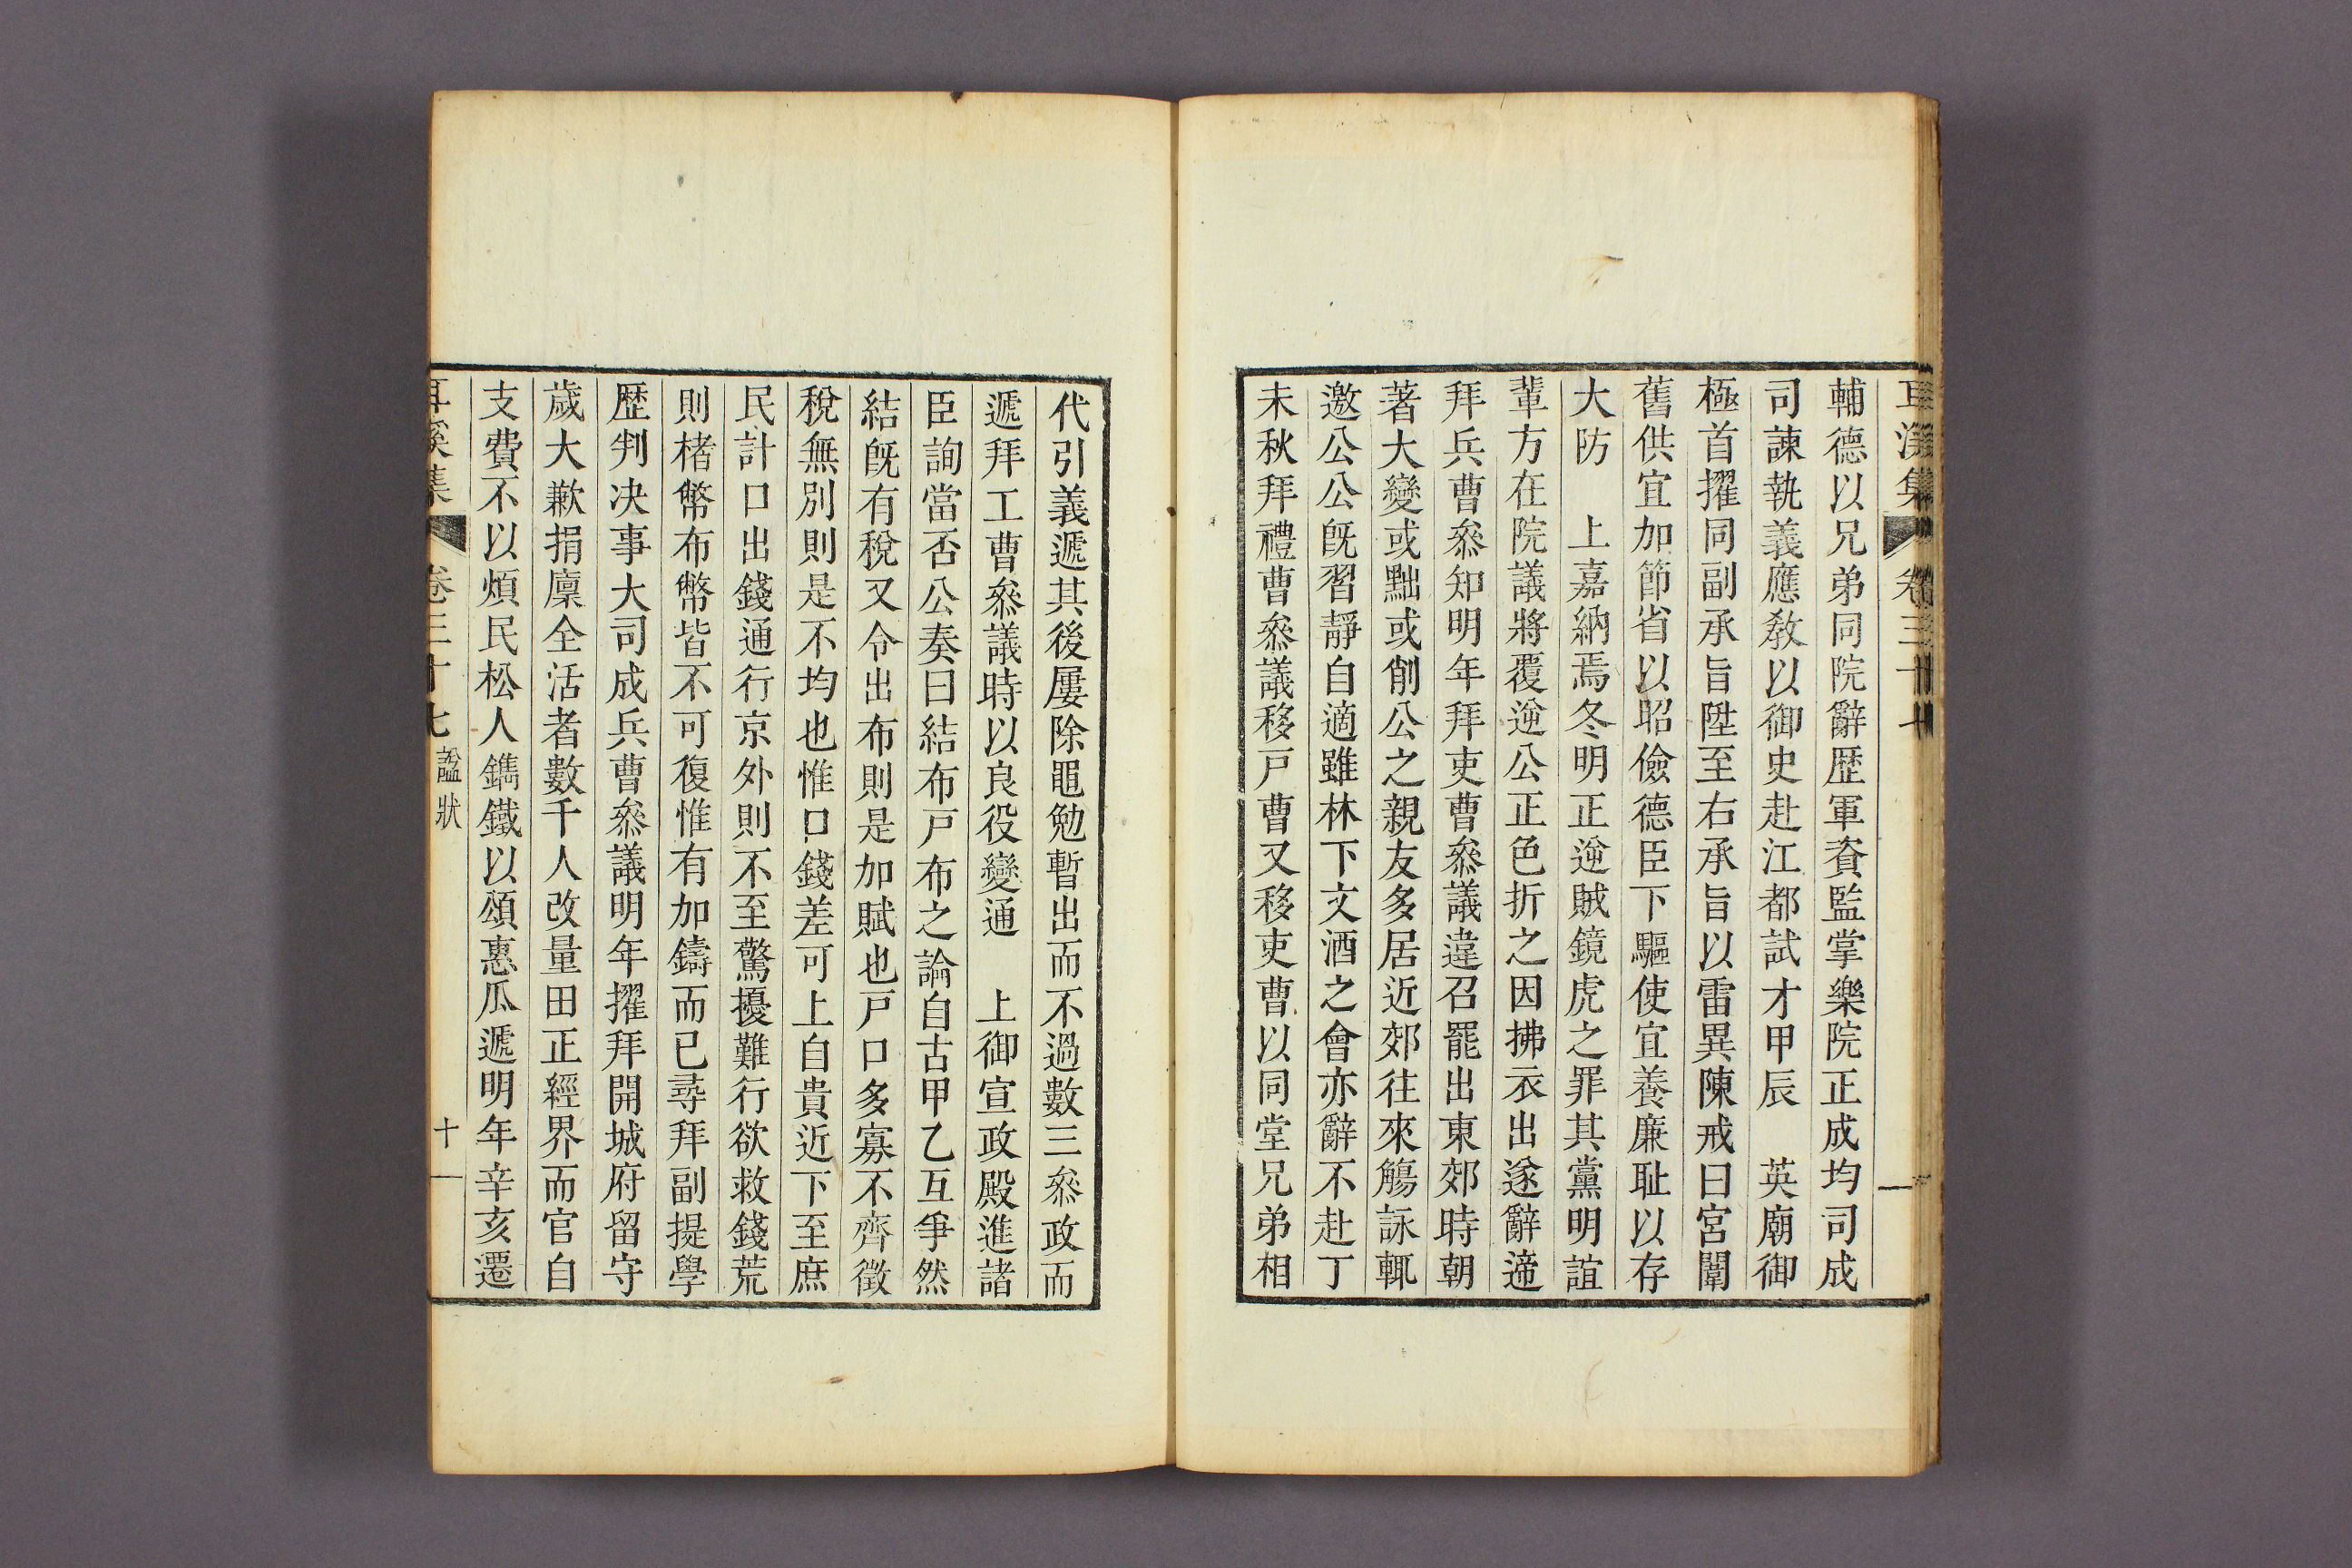 耳溪集 卷三十七
輔德以兄弟同院辭歷軍資監掌樂院正成均司成
司諫執義應敎以御史赴江都試才甲辰 英廟御
極首擢同副承旨陞至右承旨以雷異陳戒曰宮闈
舊供宜加節省以昭儉德臣下驅使宜養廉耻以存
大防 上嘉納焉冬明正逆賊鏡虎之罪其黨明誼
輩方在院議將覆逆公正色折之因拂衣出遂辭遞
拜兵曹叅知明年拜吏曹叅議違召罷出東郊時朝
著大變或黜或削公之親友多居近郊往來觴詠輒
邀公公旣習靜自適雖林下文酒之會亦辭不赴丁
未秋拜禮曹叅議移戶曹又移吏曹以同堂兄弟相
代引義遞其後屢除黽勉暫出而不過數三叅政而
遞拜工曹叅議時以良役變通 上御宣政殿進諸
臣詢當否公奏曰結布戶布之論自古甲乙互爭然
結旣有稅又令出布則是加賦也戶口多寡不齊徵
稅無別則是不均也惟口錢差可上自貴近下至庶
民計口出錢通行京外則不至驚擾難行欲救錢荒
則楮幣布幣皆不可復惟有加鑄而已尋拜副提學
歷判决事大司成兵曹叅議明年擢拜開城府留守
歲大歉捐廩全活者數千人改量田正經界而官自
支費不以煩民松人鐫鐵以頌惠瓜遞明年辛亥遷
耳溪集 卷三十七 諡狀 十一